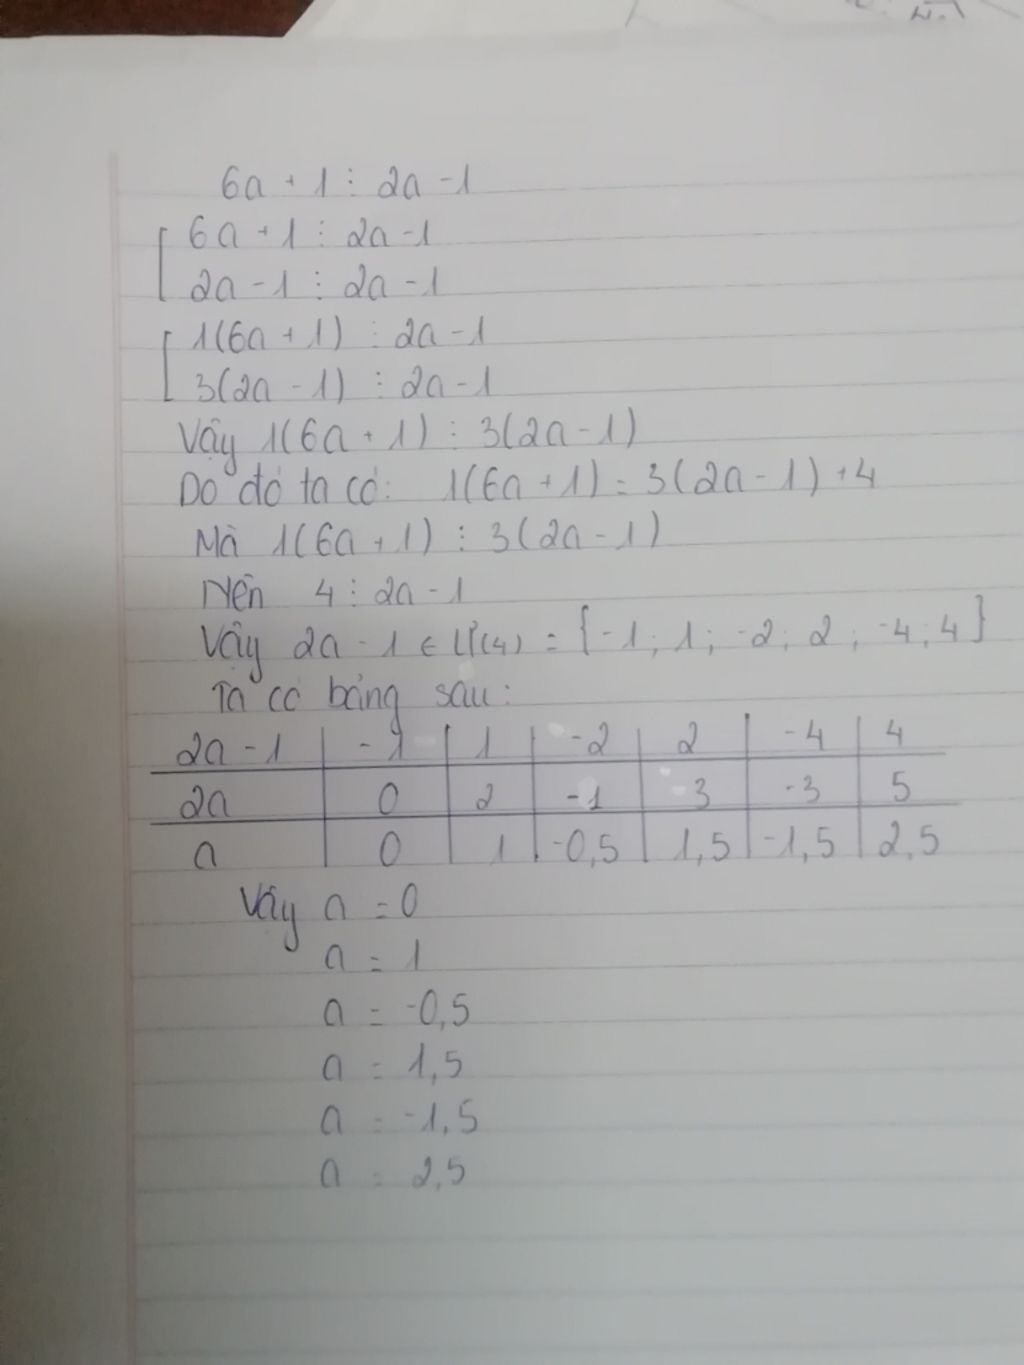 6a + 1 ⋮ 2a - 1
6a + 1 ⋮ 2a - 1
2a - 1 ⋮ 2a - 1
1(6a + 1) ⋮ 2a - 1
3(2a - 1) ⋮ 2a - 1
Vậy 1(6a + 1) ⋮ 3(2a - 1)
Do đó ta có: 1(6a + 1) = 3(2a - 1) + 4
Mà 1(6a + 1) ⋮ 3(2a - 1)
Nên 4 ⋮ 2a - 1
Vậy 2a - 1 ∈ Ư(4) = {-1; 1; -2; 2; -4; 4}
Ta có bảng sau:
2a - 1 | -1 | 1 | -2 | 2 | -4 | 4
2a | 0 | 2 | -1 | 3 | -3 | 5
a | 0 | 1 | -0,5 | 1,5 | -1,5 | 2,5
Vậy a = 0
a = 1
a = -0,5
a = 1,5
a = -1,5
a = 2,5